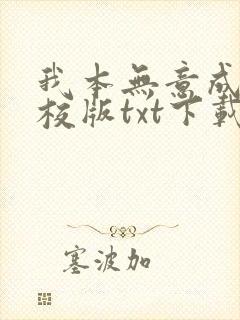 我本無意成
校版txt下載
塞波加